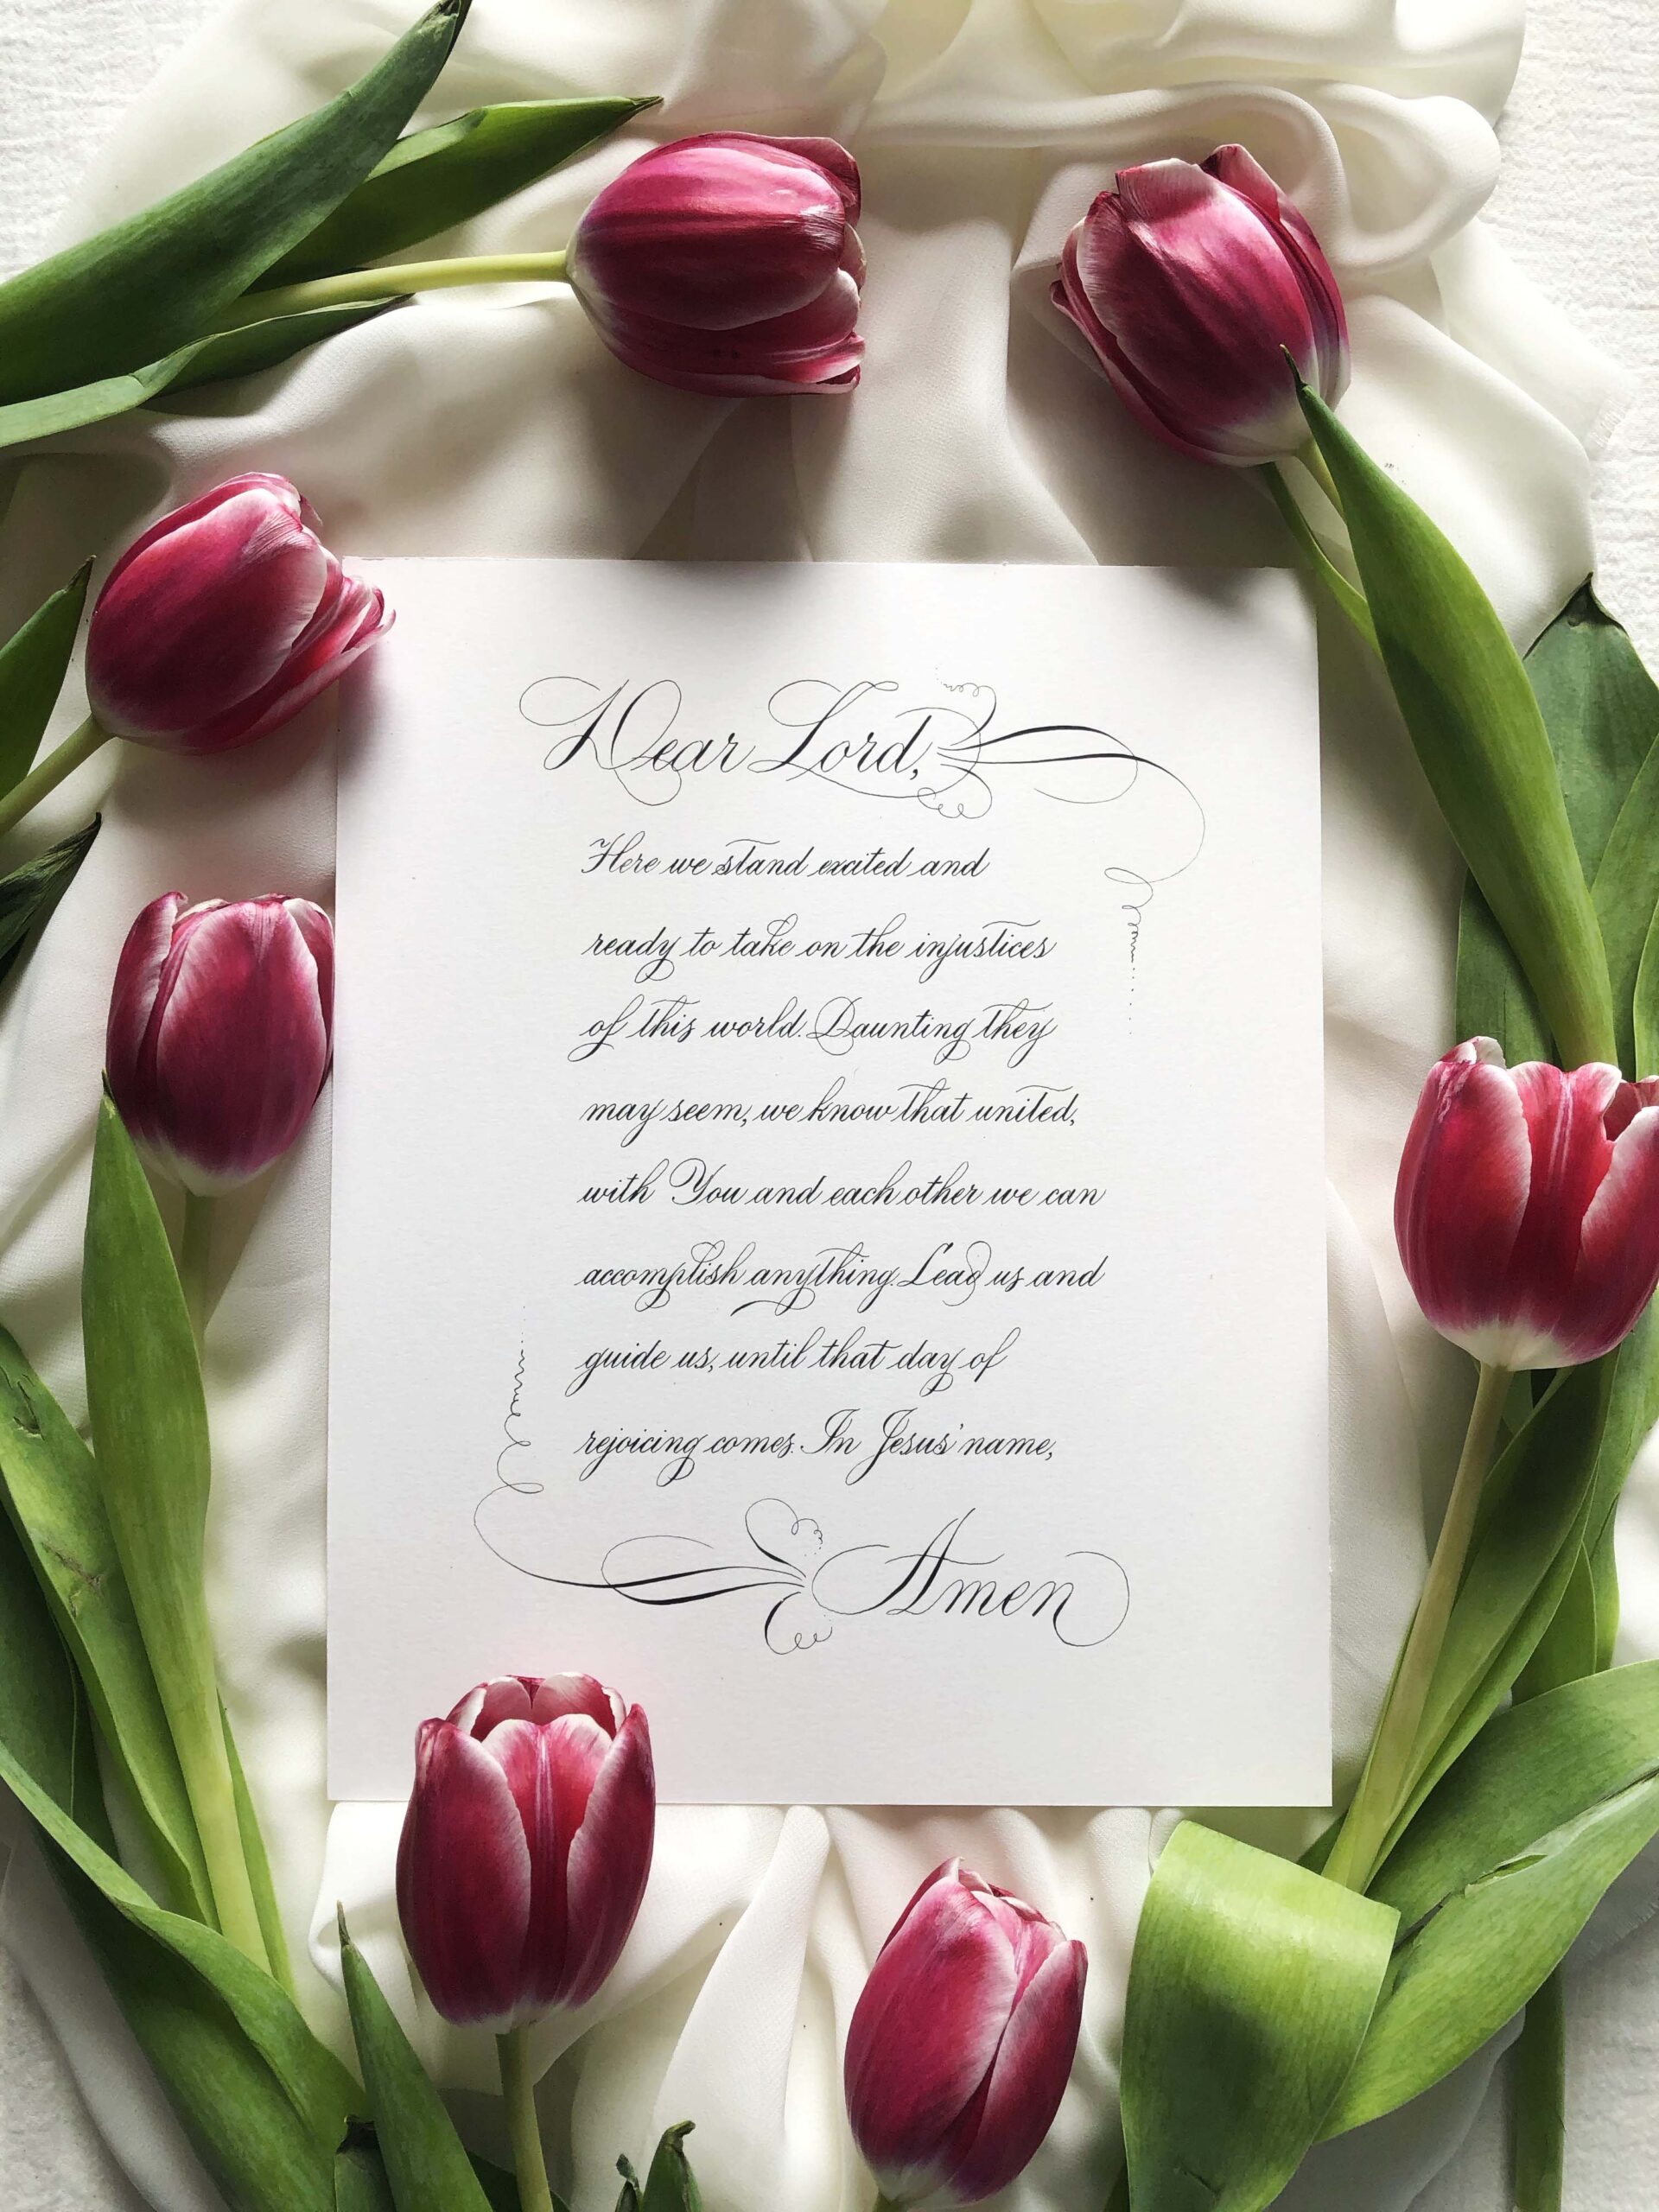 Dear Lord,
Here we stand excited and
ready to take on the injustices
of this world. Daunting they
may seem, we know that united,
with You and each other we can
accomplish anything. Lead us and
guide us, until that day of
rejoicing comes. In Jesus' name,
Amen